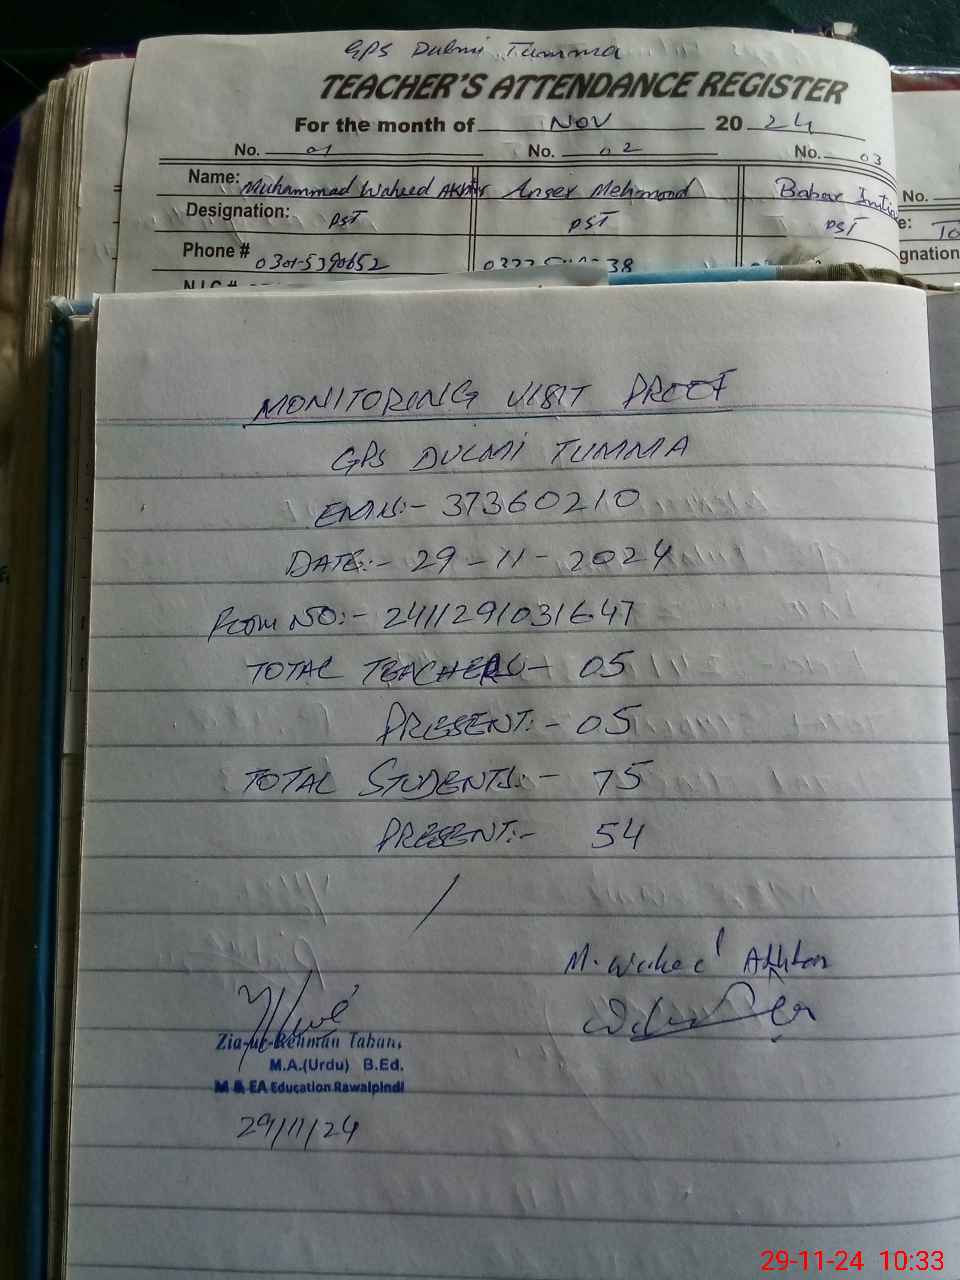 GPS Dulmi Tumma
TEACHER'S ATTENDANCE REGISTER
For the month of NOV 20 24
No. 01 No. 02 No. 03
Name: Muhammad Waheed Akhtar Anser Mehmood Babar No.
Designation: PST PST PST e:
Phone # 0301-5390652 38 gnation
MONITORING VISIT PROOF
GPS DULMI TUMMA
EMIS:- 37360210
DATE:- 29-11-2024
FORM NO:- 2411291031647
TOTAL TEACHERS- 05
PRESENT:- 05
TOTAL STUDENTS:- 75
PRESENT:- 54
M. Waheed Akhtar
Zia-ur-Rehman
M.A.(Urdu) B.Ed.
M & EA Education Rawalpindi
29/11/24
29-11-24 10:33